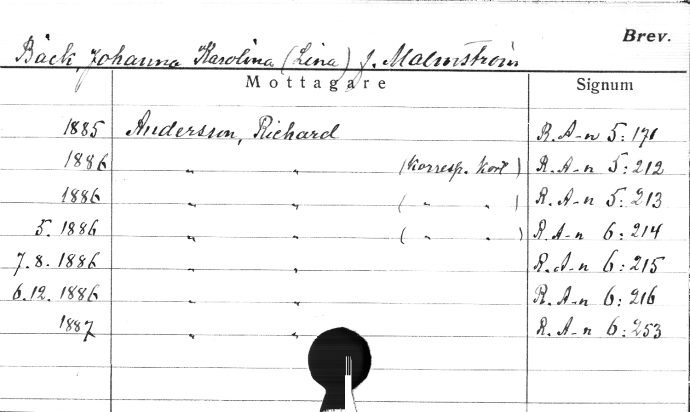 Brev.
Bäck, Johanna Karolina (Lina) f. Malmström
Mottagare Signum
1885 Andersson, Richard R. A-n 5:171
1886 " " (Korresp. kort) R. A-n 5:212
1886 " " ( " " ) R. A-n 5:213
5. 1886 " " ( " " ) R. A-n 6:214
7.8.1886 " " R. A-n 6:215
6.12.1886 " " R. A-n 6:216
1887 " " R. A-n 6:253